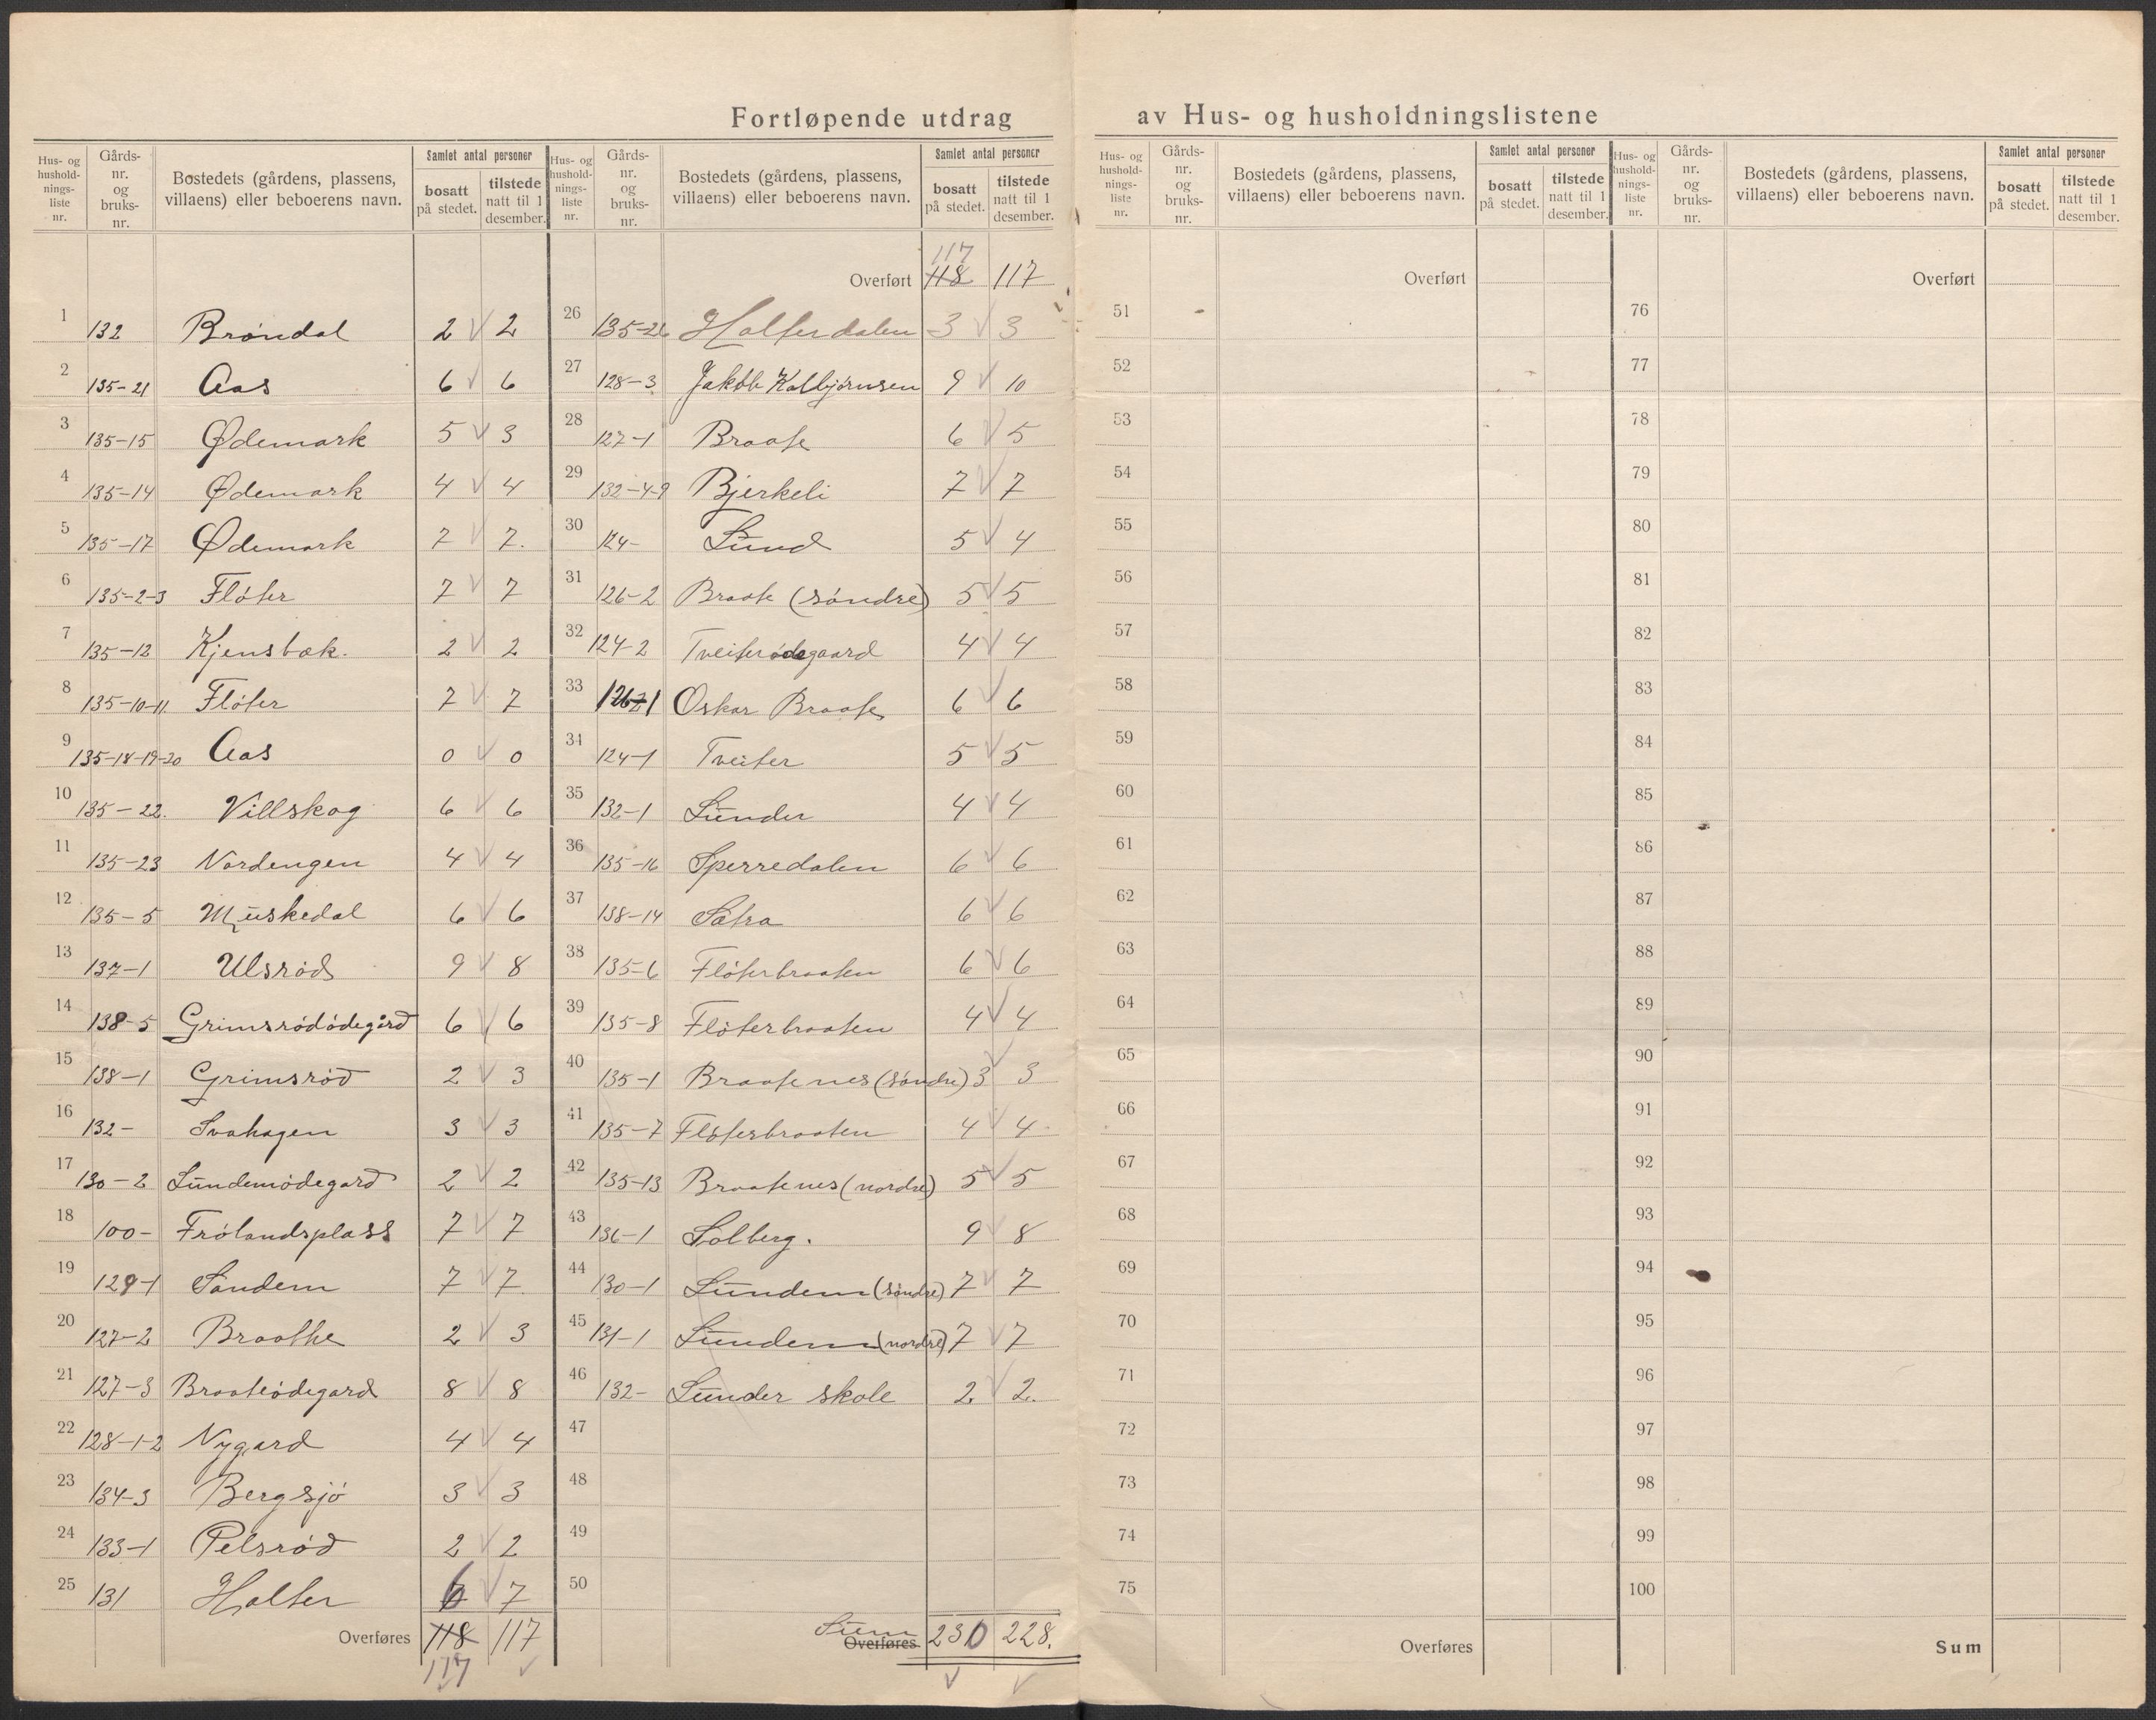 Fortløpende utdrag av Hus- og husholdningslistene
Hus- og hushold-nings-liste nr. | Gårds-nr. og bruks-nr. | Bostedets (gårdens, plassens, villaens) eller beboerens navn. | Samlet antal personer | bosatt på stedet. | tilstede natt til 1 desember.
1 132 Brøndal 2 2
2 135-21 Aas 6 6
3 135-15 Ødemark 5 3
4 135-14 Ødemark 4 4
5 135-17 Ødemark 7 7.
6 135-2-3 Fløter 7 7
7 135-12 Kjensbæk. 2 2
8 135-10-11. Fløter 7 7
9 135-18-19-20 Aas 0 0
10 135-22. Villskog 6 6
11 135-23 Nordengen 4 4
12 135-5 Muskedal 6 6
13 137-1 Ulsrød 9 8
14 138-5 Grimsrødødegård 6 6
15 138-1 Grimsrød 2 3
16 132- Svahagen 3 3
17 130-2 Lundemødegard 2 2
18 100- Frølandsplass 7 7
19 129-1 Sandem 7 7
20 127-2 Braathe 2 3
21 127-3 Braateødegard 8 8
22 128-1-2 Nygard 4 4
23 134-3 Bergsjø 3 3
24 133-1 Pelsrød 2 2
25 131 Holter 6 7
Overføres 118 117
117
Hus- og hushold-nings-liste nr. | Gårds-nr. og bruks-nr. | Bostedets (gårdens, plassens, villaens) eller beboerens navn. | Samlet antal personer | bosatt på stedet. | tilstede natt til 1 desember.
117
Overført 118 117
26 135-26 Holterdalen 3 3
27 128-3 Jakob Kolbjørnsen 9 10
28 127-1 Braate 6 5
29 132-4-9 Bjerkeli 7 7
30 124- Lund 5 4
31 126-2 Braate (søndre) 5 5
32 124-2 Tveiterødegaard 4 4
33 126-1 Oskar Braate 6 6
34 124-1 Tveiter 5 5
35 132-1 Lunder 4 4
36 135-16 Sperredalen 6 6
37 138-14 Sætra 6 6
38 135-6 Fløterbraaten 6 6
39 135-8 Fløterbraaten 4 4
40 135-1 Braatenes (søndre) 3 3
41 135-7 Fløterbraaten 4 4
42 135-13 Braatenes (nordre) 5 5
43 136-1 Solberg. 9 8
44 130-1 Lundem (søndre) 7 7
45 131-1 Lundem (nordre) 7 7
46 132- Lunder skole 2 2.
47
48
49
50
Sum Overføres 230 228.
Hus- og hushold-nings-liste nr. | Gårds-nr. og bruks-nr. | Bostedets (gårdens, plassens, villaens) eller beboerens navn. | Samlet antal personer | bosatt på stedet. | tilstede natt til 1 desember.
Overført
51
52
53
54
55
56
57
58
59
60
61
62
63
64
65
66
67
68
69
70
71
72
73
74
75
Overføres
Hus- og hushold-nings-liste nr. | Gårds-nr. og bruks-nr. | Bostedets (gårdens, plassens, villaens) eller beboerens navn. | Samlet antal personer | bosatt på stedet. | tilstede natt til 1 desember.
Overført
76
77
78
79
80
81
82
83
84
85
86
87
88
89
90
91
92
93
94
95
96
97
98
99
100
Sum